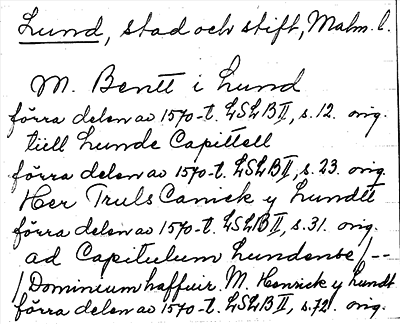 Lund, stad och stift, Malm. l.
M. Bentt i Lund
förra delen av 1570-t. LSLB II, s. 12. orig.
tiill Lunde Capittell
förra delen av 1570-t. LSLB II, s. 23. orig.
Her Truls Canick y Lundtt
förra delen av 1570-t. LSLB II, s. 31. orig.
ad Capitulum Lundense /--
/ Dominium haffuir. M. Henrick y Lundt
förra delen av 1570-t. LSLB II, s. 72. orig.